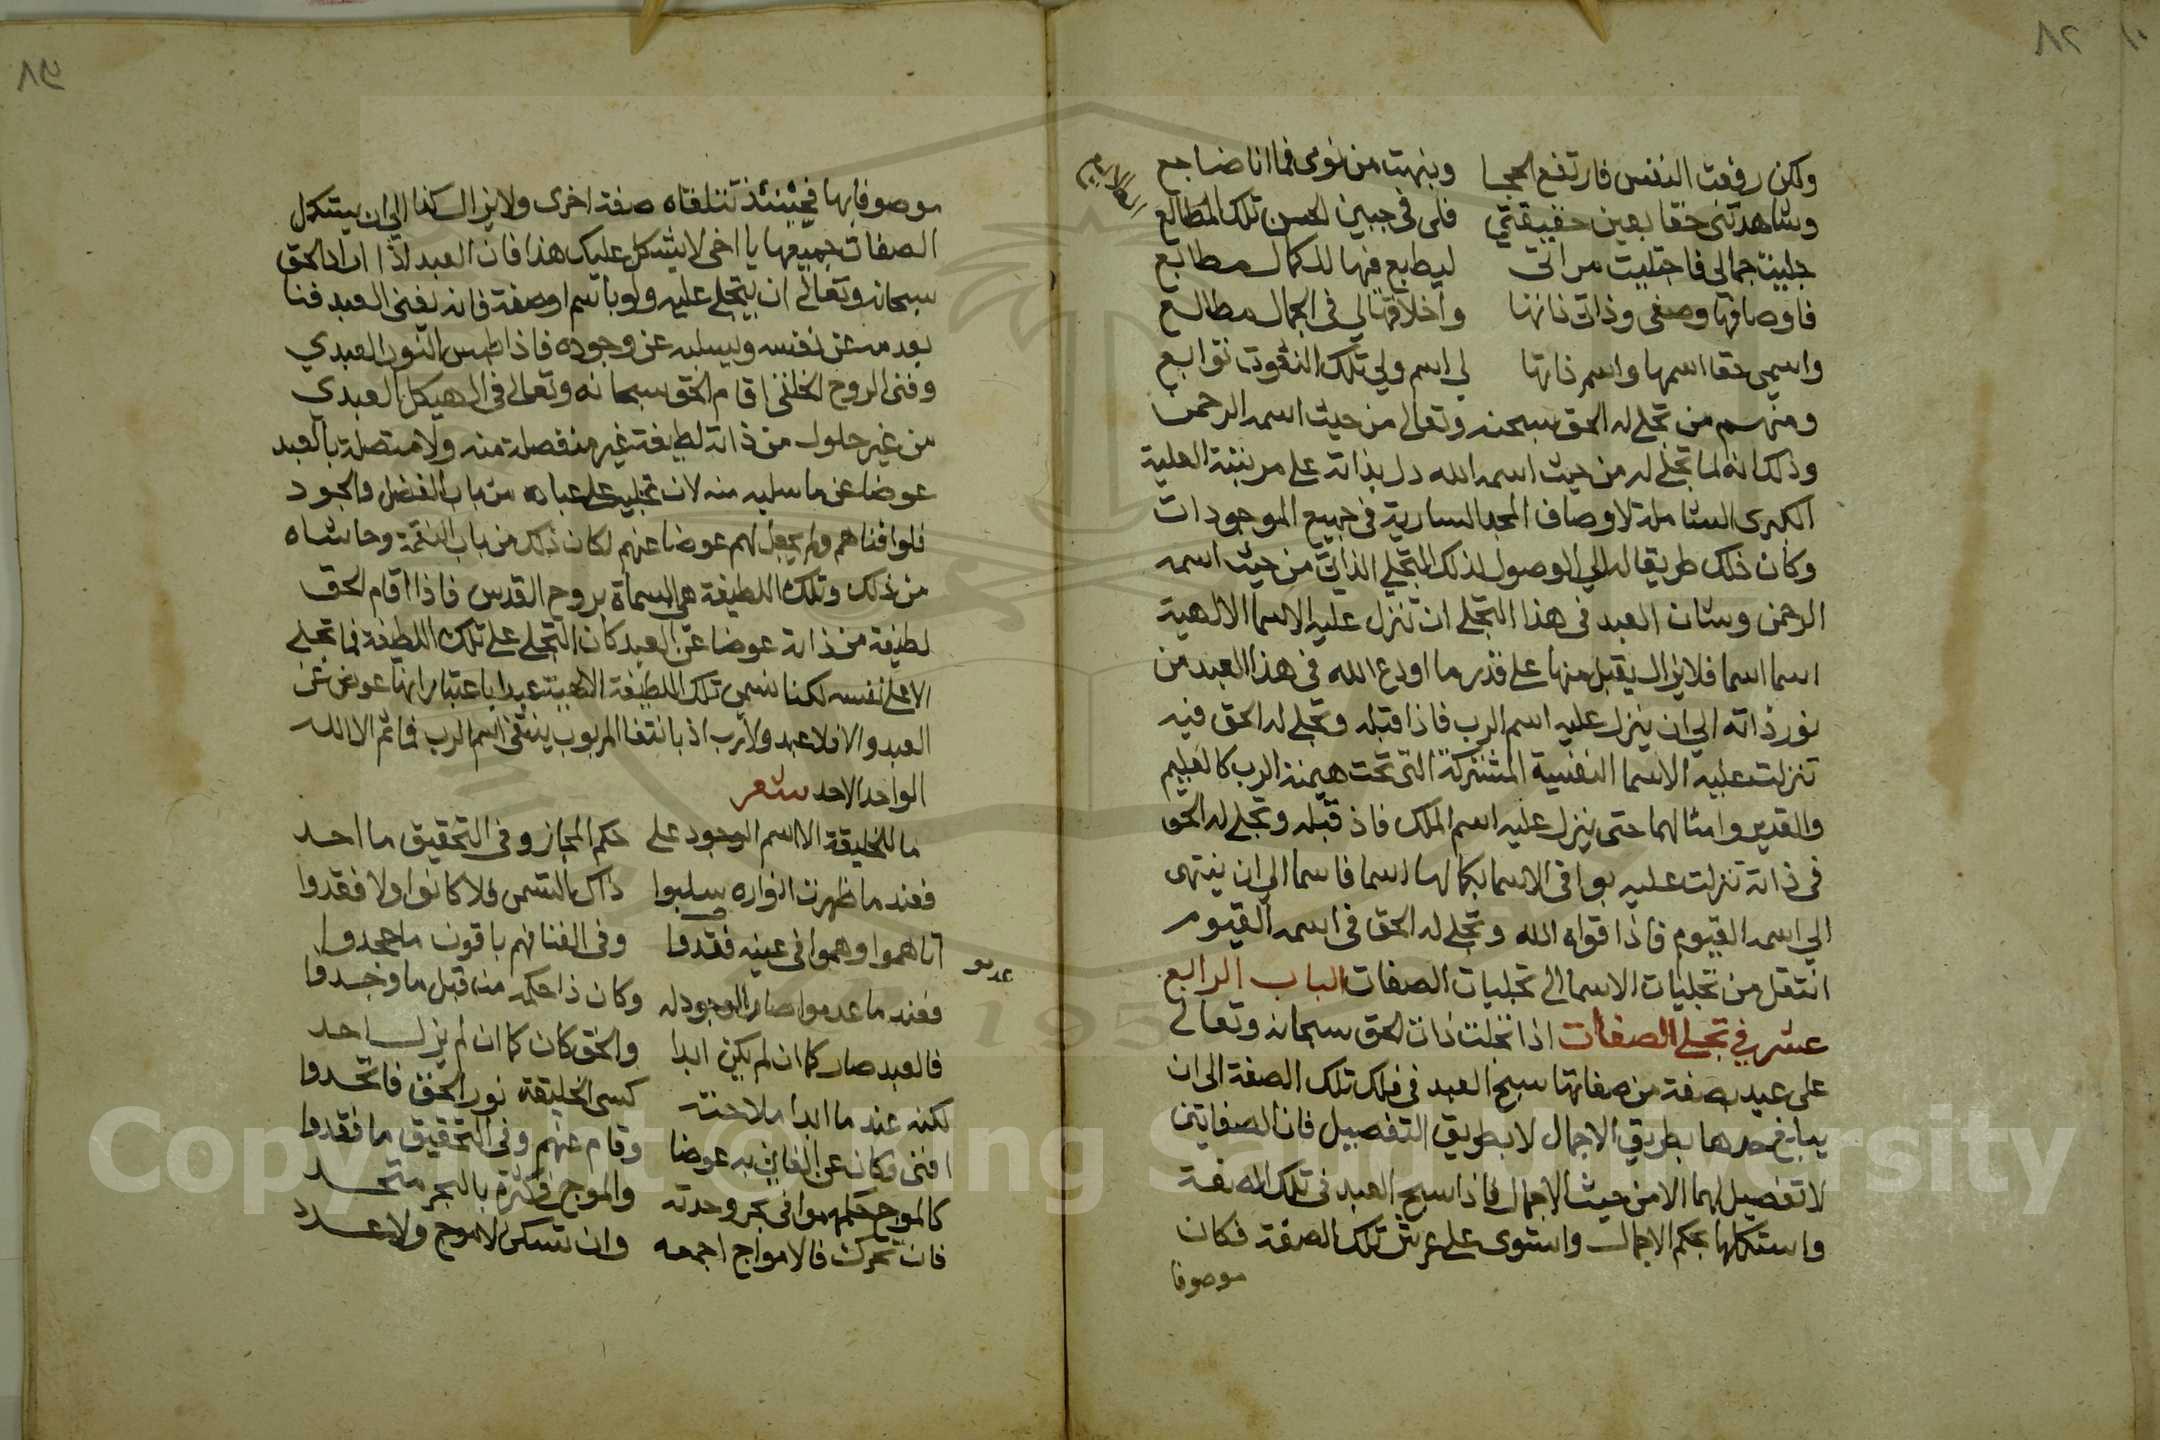 ولكن رفعت النفس فارتفع الحجا وبنهت من نومى فما انا ضاجع
وشاهدتنى حقا بعين حقيقتي فلى فى جبين الحسن تلك المطالع
جليت جمالى فاجتليت مراتى ليطبع فيها للكمال مطابع
فاوصافها وصفى وذاتى ذاتها واخلاقها لي فى الجمال مطالع
واسمى حقا اسمها واسم ذاتها لي اسم ولي تلك النعوت توابع
ومنهم من تجلى له الحق سبحنه وتعالى من حيث اسمه الرحمن
وذلك انه لما تجلى له من حيث اسمه الله دل بذاته على مرتبته العلية
الكبرى الشاملة لاوصاف المجد السارية فى جميع الموجودات
وكان ذلك طريقا له الي الوصول لذلك التجلي الذاتى من حيث اسمه
الرحمن وشان العبد فى هذا التجلى ان تنزل عليه الاسما الالهية
اسما اسما فلا يزال يقبل منها على قدر ما اودع الله فى هذا العبد من
نور ذاته الي ان ينزل عليه اسم الرب فاذا قبله وتجلى له الحق فيه
تنزلت عليه الاسما النفسية المشتركة التى تحت هيمنة الرب كالعليم
والقدير وامثالهما حتى ينزل عليه اسم الملك فاذ قبله وتجلى له الحق
فى ذاته تنزلت عليه بواقى الاسما بكمالها اسما فاسما الي ان ينتهى
الي اسمه القيوم فاذا قواه الله وتجلى له الحق فى اسمه القيوم
انتقل من تجليات الاسما الى تجليات الصفات الباب الرابع
عشر في تجلى الصفات اذا تجلت ذات الحق سبحانه وتعالى
على عبد بصفة من صفاتها سبح العبد فى فلك تلك الصفة الى ان
يبلغ حدها بطريق الاجمال لا بطريق التفصيل فان الصفاتين
لا تفصيل لهما الا من حيث الاجمال فاذا سبح العبد فى تلك الصفة
واستكملها بحكم الاجمال واستوى على عرش تلك الصفة فكان
موصوفا
موصوفا بها فحينئذ تتلقاه صفة اخرى ولا يزال كذا الي ان يستكمل
الصفات جميعها يا اخى لا يشكل عليك هذا فان العبد اذا اراد الحق
سبحانه وتعالى ان يتجلى عليه ولو باسم او صفة فانه يفنى العبد فنا
يعدمه عن نفسه ويسلبه عن وجوده فاذا طمس النور العبدي
وفنى الروح الخلقى اقام الحق سبحانه وتعالى فى الهيكل العبدي
من غير حلول من ذاته لطيفة غير منفصلة منه ولا متصلة بالعبد
عوضا عن ما سلبه منه لان تجليه على عباده من باب الفضل والجود
فلو افناهم ولم يجعل لهم عوضا عنهم لكان ذلك من باب النقمة وحاشاه
من ذلك وتلك اللطيفة هى المسماة بروح القدس فاذا اقام الحق
لطيفة من ذاته عوضا عن العبد كان التجلى على تلك اللطيفة فما تجلى
الا على نفسه لكنا نسمى تلك اللطيفة الالهية عبدا باعتبار انها عوض عن
العبد والا فلا عبد ولا رب اذ بانتفا المربوب ينتفى اسم الرب فما ثم الا الله
الواحد الاحد شعر
ما للخليقة الا اسم الوجود على حكم المجاز وفى التحقيق ما احد
فعند ما ظهرت انواره سلبوا ذاك التسمى فلا كانوا ولا فقدوا
افناهموا وهموا فى عينه فقدوا وفى الفنا فهم باقون ما جحدوا
عدمو
فعند ما عدموا صار الوجود له وكان ذا حكمه من قبل ما وجدوا
فالعبد صار كما ان لم يكن ابدا والحق كان كما ان لم يزل احد
لكنه عند ما ابدا ملاحته كسى الخليقة نور الحق فاتحدوا
افنى وكان عن الفانى به عوضا وقام عنهم وفى التحقيق ما فقدوا
كالموج حكمهموا فى بحر وحدته والموج فى كثرة بالبحر متحد
فان تحرك فالامواج اجمعه وان تسكن لا موج ولا عدد
٨٢
Copyright © King Saud University
195